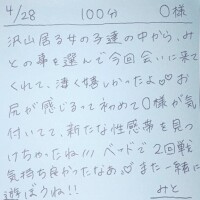 4/28 100分 O様
沢山居る女の子達の中から、み
との事を選んで今回会いに来て
くれて、凄く嬉しかったよ♡♡お
尻が感じるって初めてO様が気
付いてて、新たな性感帯を見つ
けちゃったね!!! ベッドで2回戦
気持ち良かったなぁ♡また一緒に
遊ぼうね!!
みと